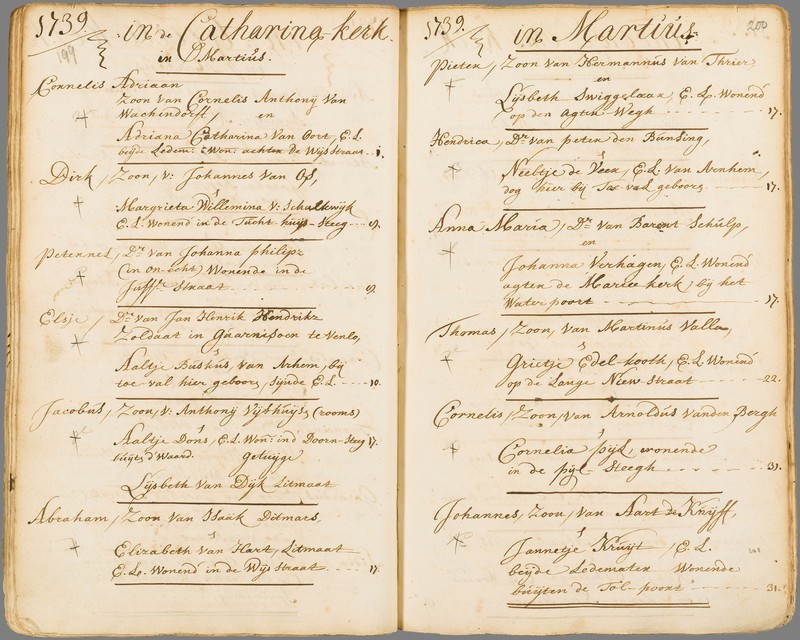 1739
199
in de Catharina kerk.
in Martius.
Cornelis Adriaan
Zoon van Cornelis Anthonij Van
Wachendorff, en
Adriana Catharina Van Oort, E.L.
beijde Ledem: Won: achter de Wijstraat .. 1.
Dirk, Zoon, v: Johannes Van Os,
Margrieta Willemina v: Schalkwijk
E.L. Wonend in de Tucht huijs-Steeg --- 9.
Peternel, Dr. van Johanna philips
(in on-echt) Wonende in de
Juffr. Straat 9.
Elsje, Dr. van Jan Henrik Hendrikz
Zoldaat in Guarnisoen te Venlo,
Aaltje Buskus, van Arhem, bij
toe val hier geboore, sijnde E.L. ---- 10.
Jacobus, Zoon, v: Anthonij Vijfhuijs (rooms)
Aaltje Dons, E.L. Won: in d Doorn-Steeg 17.
buijte d'Waard. Getuijge
Lijsbeth Van Dijk Litmaat
Abraham, Zoon Van Isaak Ditmars,
Elizabeth van Hart, Litmaat
E.L. Wonend in de Wijstraat --- 17.
1739.
200
in Martius.
Pieter, Zoon van Hermannus Van Thrier
en
Lijsbeth Swiggelaar, E.L. Wonend
op den Agter-Wegh --- 17.
Hendrica, Dr. van peter den Bunsing,
Neeltje de Veer, E.L. Van Arnhem,
dog hier bij Toe val geboore --- 17.
Anna Maria, Dr. Van Barent Schulp,
en
Johanna Verhagen, E.L. Wonend
agter de Marie kerk, bij het
Water poort --- 17.
Thomas, Zoon, Van Martinus Valla,
Grietje Edel-kooth, E.L. Wonend
op de Lange Niew Straat --- 22.
Cornelis, Zoon, Van Arnoldus Vanden Bergh
Cornelia pijl, wonende
in de pijl-Steegh --- 31.
Johannes, Zoon, van Aart de Knijff,
Jannetje Kruijt, E.L.
beijde Ledematen Wonende
buijten de Tol-poort --- 31.